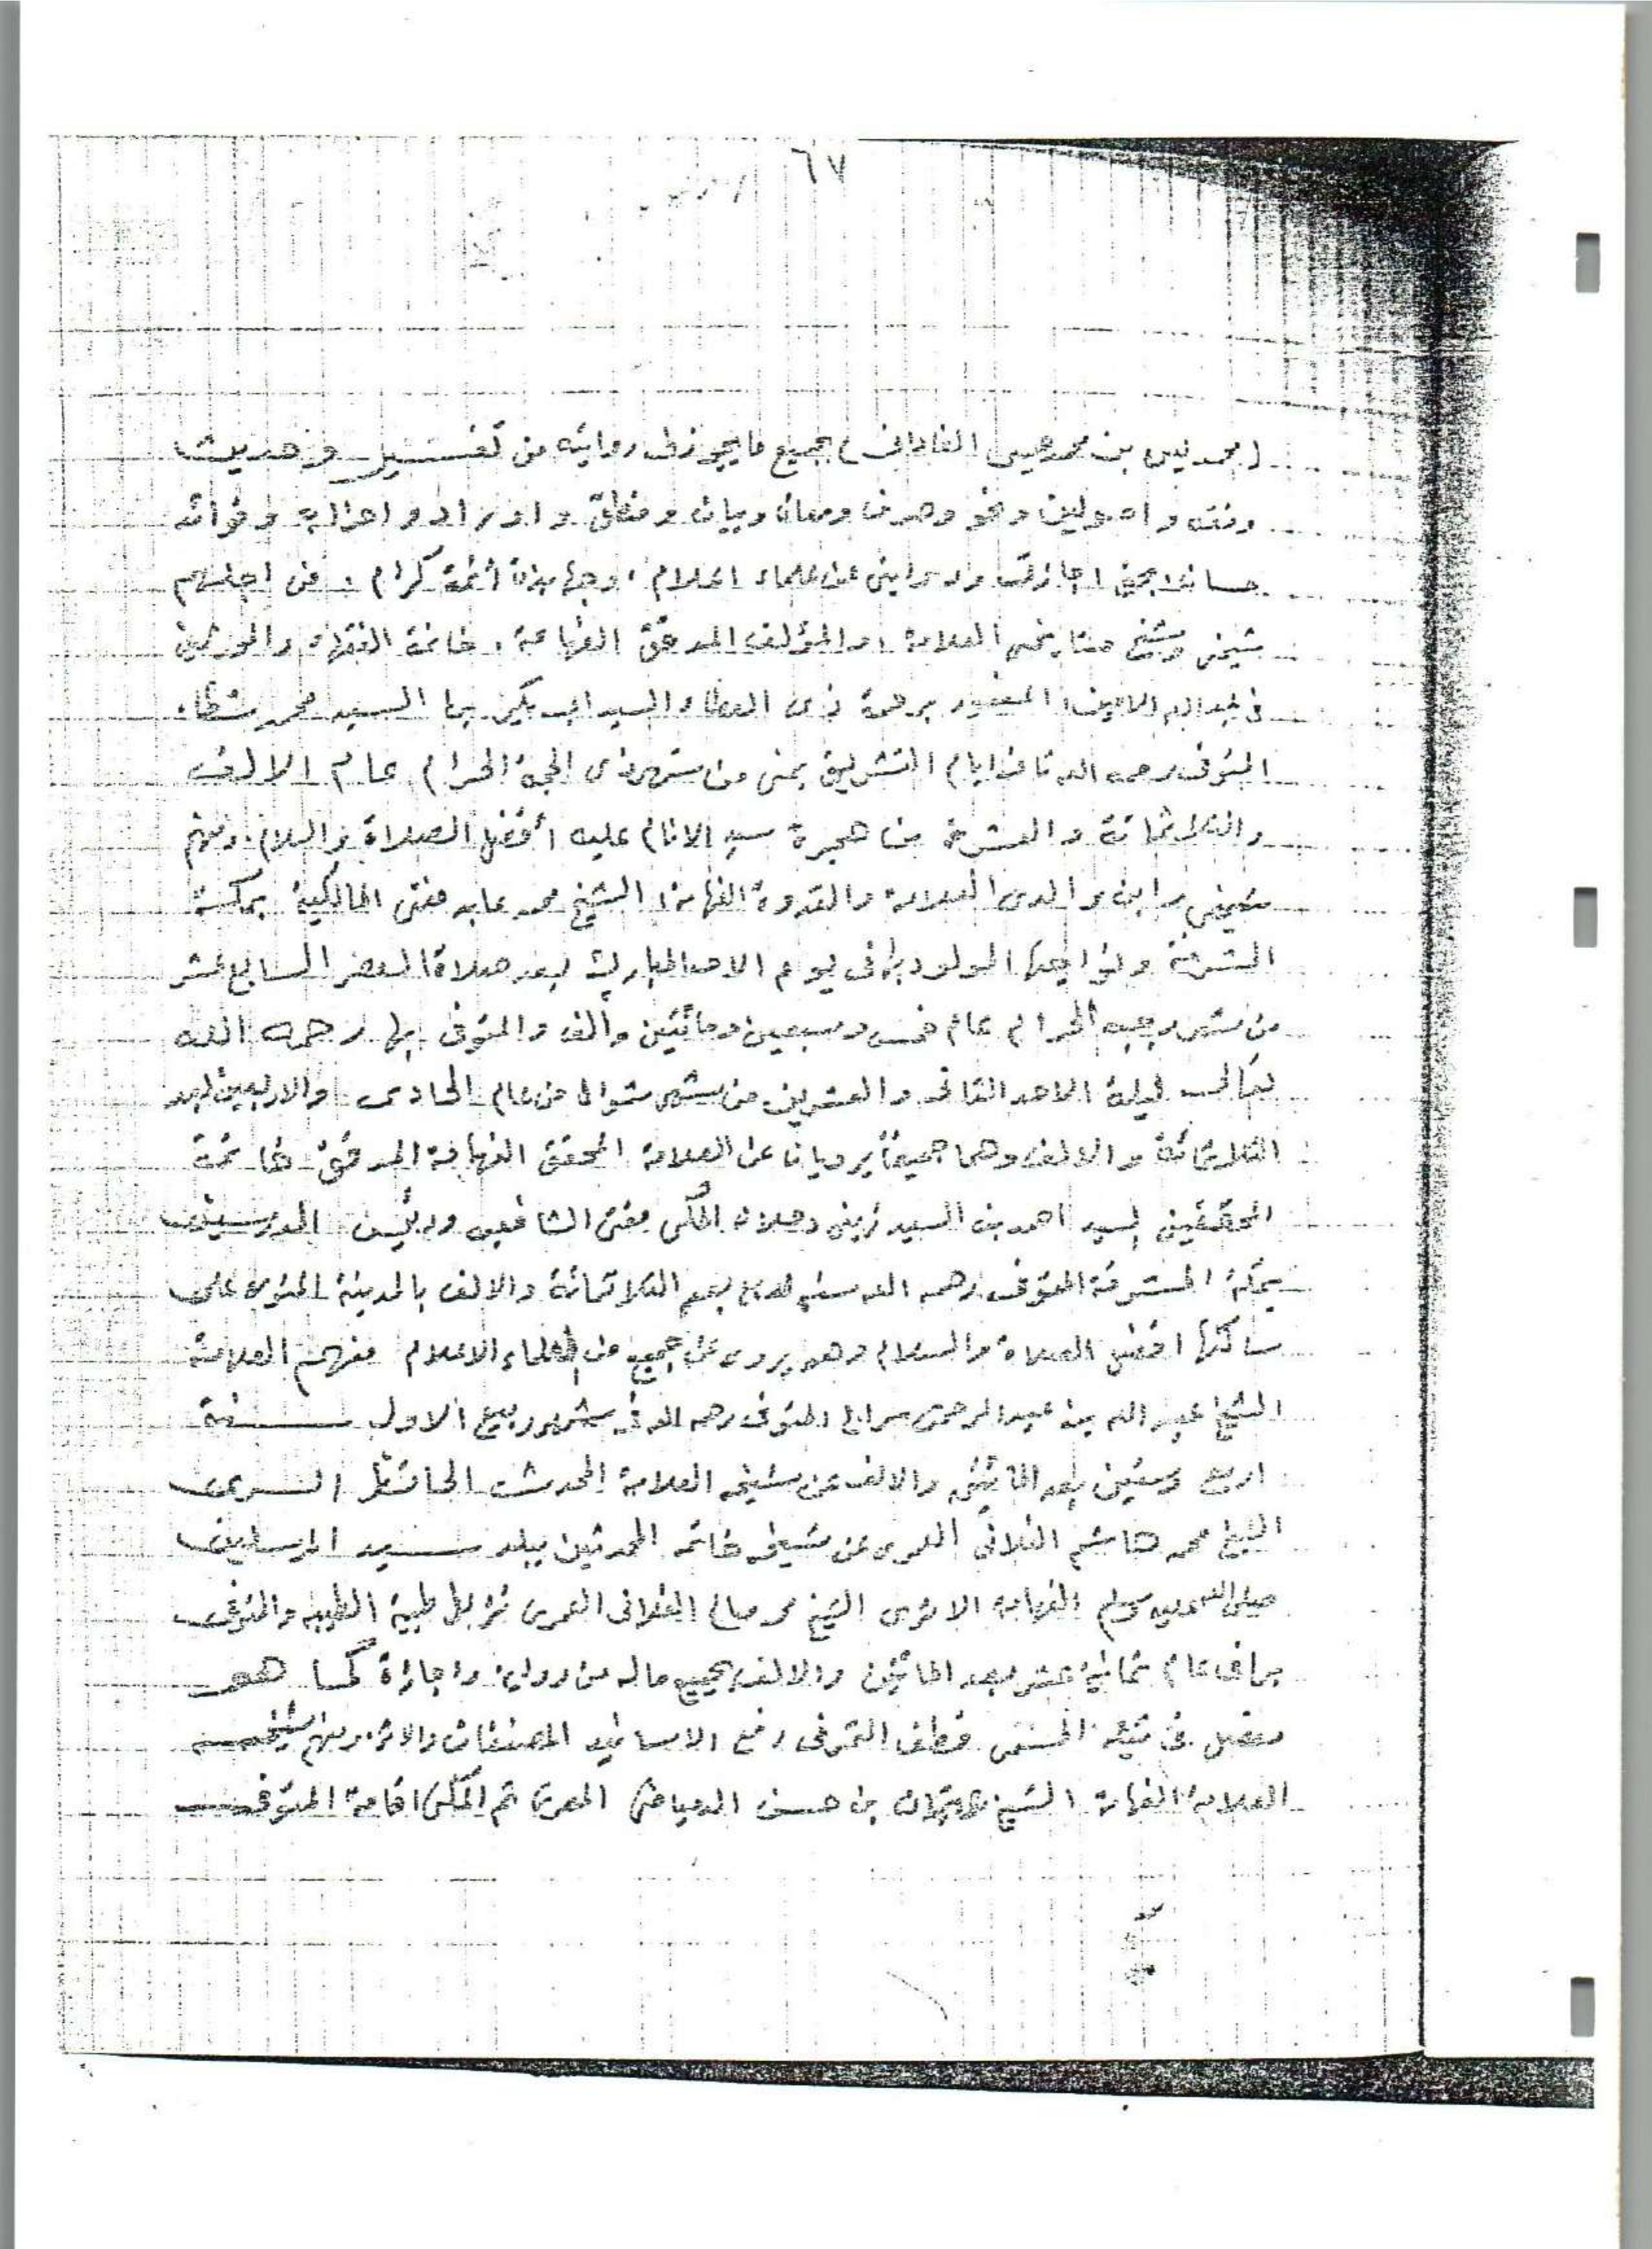 ٦٧
(محمد يس بن محمد عيسى الفاداني) بجميع ما يجوز لي روايته من تفسير وحديث
وفقه واصولين ونحو وصرف ومعان وبيان ومنطق واوراد واحزاب وفوائد
حسان بحق اجازتي وروايتي عن علماء اعلام، وجهابذة أئمة كرام، فمن اجلهم
شيخي وشيخ مشايخي العلامة، والمؤلف المدقق الفهامة، خاتمة الفقهاء والمحدثين
في البلد الامين، المغفور برحمة ذي العطاء السيد ابي بكر بن السيد محمد شطا،
المتوفى رحمه الله ثاني ايام التشريق بمنى من شهر ذي الحجة الحرام عام الالف
والثلاثمائة والعشرة من هجرة سيد الانام عليه أفضل الصلاة والسلام، ومنهم
شيخي وابن والدي العلامة والقدوة الفهامة، الشيخ محمد عابد مفتي المالكية بمكة
المشرفة ونواحيها المولود بها في يوم الاحد المبارك بعد صلاة العصر السابع عشر
من شهر رجب الحرام عام خمس وسبعين ومائتين وألف والمتوفى بها رحمه الله
تعالى ليلة الاحد الثاني والعشرين من شهر شوال من عام الحادي والاربعين بعد
الثلاثمائة والالف وهما جميعاً يرويان عن العلامة المحقق الفهامة المدقق خاتمة
المحققين السيد احمد بن السيد زيني دحلان المكي مفتي الشافعيه ورئيس المدرسين
بمكة المشرفة المتوفى رحمه الله سنة اربع بعد الثلاثمائة والالف بالمدينة المنورة على
ساكنها افضل الصلاة والسلام وهو يروي عن جميع من العلماء الاعلام فمنهم العلامة
الشيخ عبد الله بن عبد الرحمن سراج المتوفى رحمه الله في شهر ربيع الاول سنة
اربع وستين بعد المائتين والالف عن شيخه العلامة المحدث الحافظ السري
الشيخ محمد هاشم الفلاني العمري عن شيخه خاتمة المحدثين ببلد سيد المرسلين
صلى الله عليه وسلم الفهامة الاثري الشيخ محمد صالح الفلاني العمري نزيل طيبة الطيبه والمتوفى
بها في عام ثمانية عشر بعد المائتين والالف بجميع ماله من رواية واجازة كما هو
مفصل في ثبته المسمى قطف الثمر في رفع الاسانيد المصنفات والاثر، ومنهم شيخه
العلامة الفهامة الشيخ عثمان بن حسن الدمياطي المصري ثم المكي اقامة المتوفى